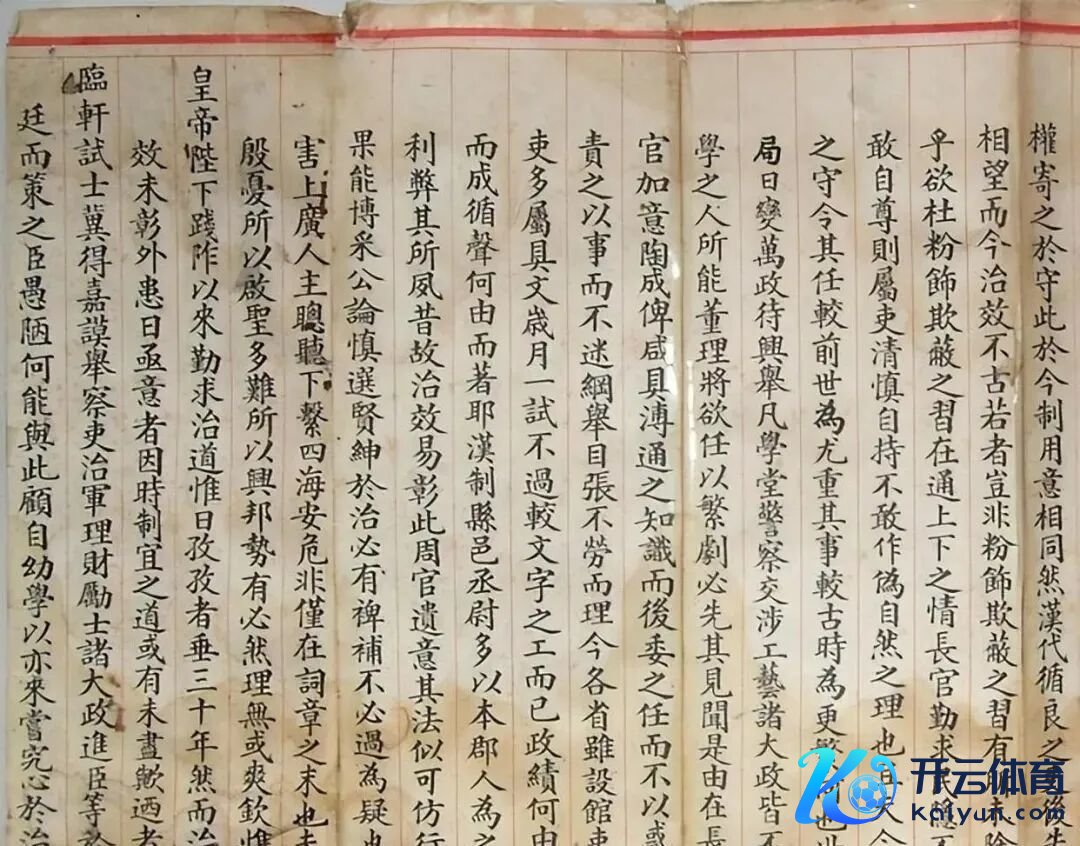 權寄之於守此於今制用意相同然漢代循良之後先
相望而今治效不古若者豈非粉飾欺蔽之習有所未除
乎欲杜粉飾欺蔽之習在通上下之情長官勤求民隱不
敢自尊則屬吏清慎自持不敢作偽自然之理也且夫今
之守令其任較前世為尤重其事較古時為更繁何也
局日變萬政待興舉凡學堂警察交涉工藝諸大政皆不
學之人所能董理將欲任以繁劇必先其見聞是由在長
官加意陶成俾咸具溥通之知識而後委之任而不以惑
責之以事而不迷綱舉目張不勞而理今各省雖設館吏
吏多屬具文歲月一試不過較文字之工而已政績何由
而成循聲何由而著耶漢制縣邑丞尉多以本郡人為之
利弊其所夙昔故治效易彰此周官遺意其法似可仿行
果能博采公論慎選賢紳於治必有裨補不必過為疑也
害上廣人主聰聽下繫四海安危非僅在詞章之末也
殷憂所以啟聖多難所以興邦勢有必然理無或爽欽惟
皇帝陛下踐阼以來勤求治道惟日孜孜者垂三十年然而治
效未彰外患日亟意者因時制宜之道或有未盡歟迺者
臨軒試士冀得嘉謨舉察吏治軍理財勵士諸大政進臣等於
廷而策之臣愚陋何能與此顧自幼學以亦來嘗究心於治
开云体育
Kaiyun.com